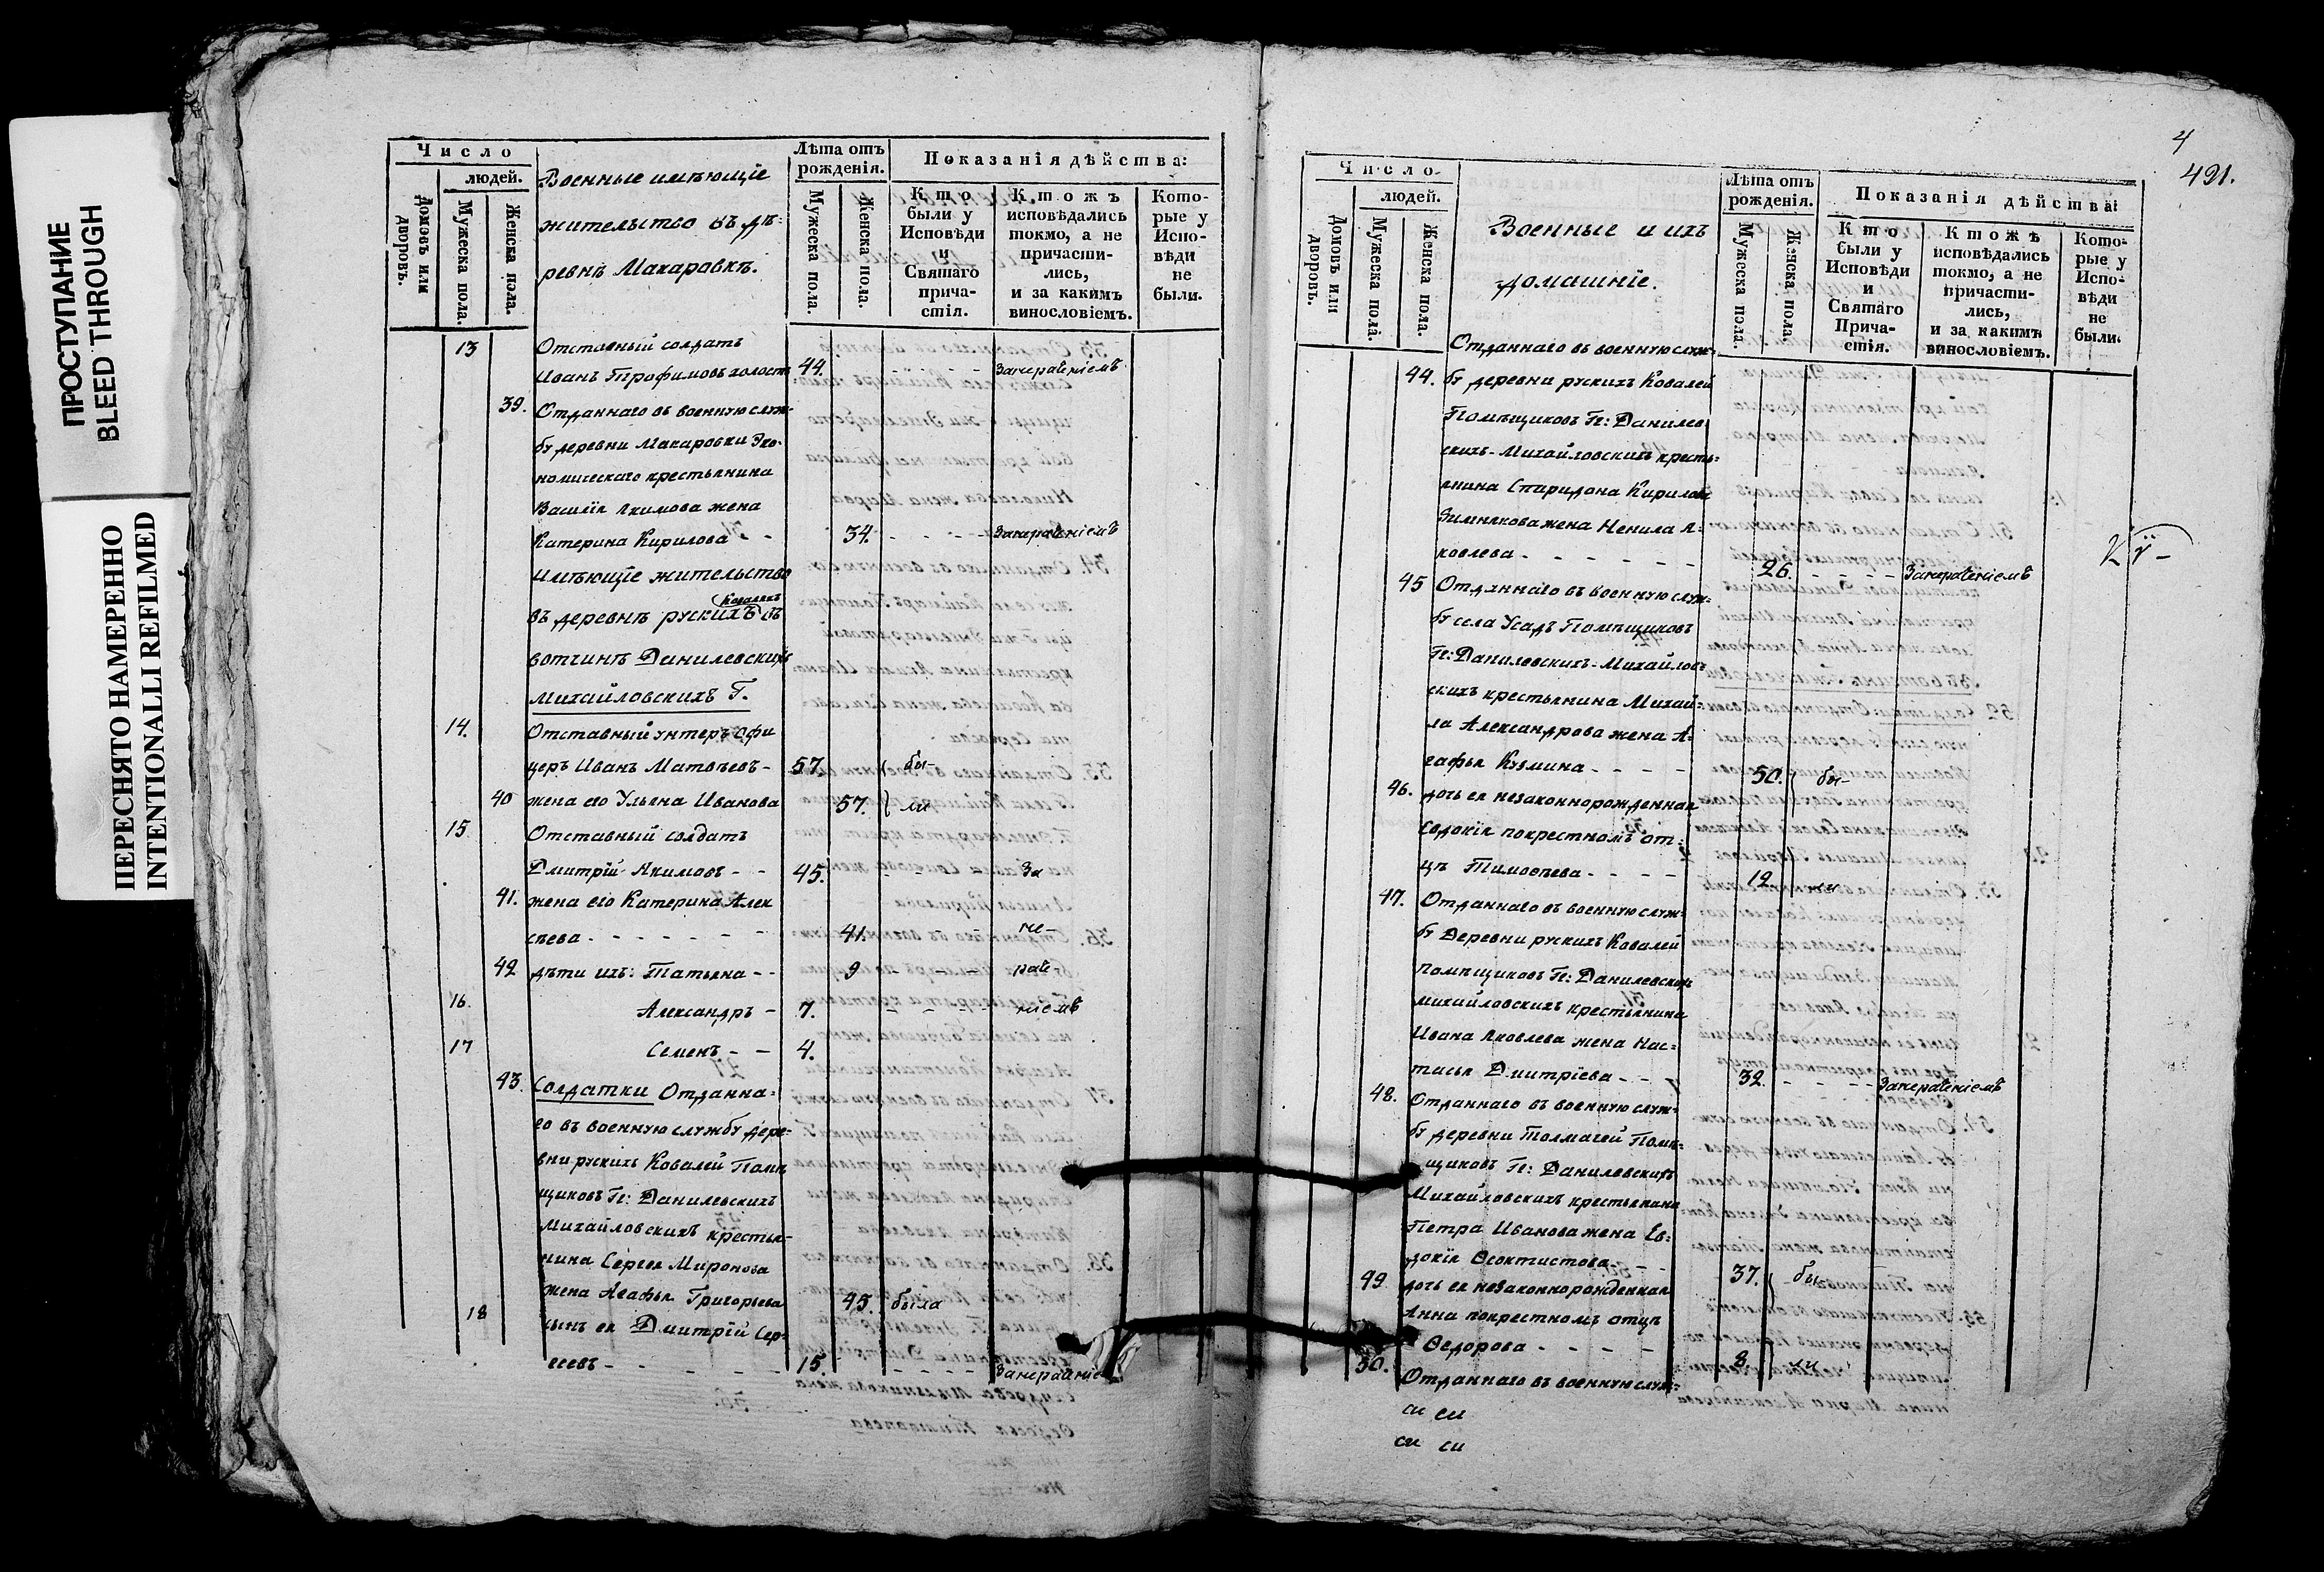 ПРОСТУПАНИЕ
BLEED THROUGH
ПЕРЕСНЯТО НАМЕРЕННО
INTENTIONALLI REFILMED
Число
людей.
Домовъ или дворовъ.
Мужеска пола.
Женска пола.
Военные имѣющіе
жительство въ де-
ревнѣ Макаровкѣ.
Лѣта отъ рожденія.
Мужеска пола.
Женска пола.
Показанія дѣйства:
Кто были у Исповѣди и Святаго прича-стія.
Ктожъ исповѣдались токмо, а не причасти-лись, и за какимъ винословіемъ.
Кото-рые у Испо-вѣди не были.
13 Отставный солдатъ
Иванъ Трофимовъ холостъ 44. - - - Занераченіемъ
39. Отданнаго въ военную служ-
бу деревни Макаровки Эко-
номическаго крестьянина
Василія Акимова жена
Катерина Кирилова - - 34. - - - - Занераченіемъ
Имѣющіе жительство
Коваляхъ
въ деревнѣ рускихъ въ
вотчинѣ Данилевскихъ
Михайловскихъ Г.
14. Отставный унтеръ офи
церъ Иванъ Матвѣевъ - 57. бы-
40 жена его Ульяна Иванова 57. ли
15. Отставный солдатъ
Дмитрій Акимовъ - - 45. - - - За
41. жена его Катерина Алек
сѣева - - - - - - 41. - - - не-
42 дѣти ихъ: Татьяна - - 9 - - - раче-
16. Александръ - 7. - - - - ніемъ
17 Семенъ - - 4.
43. Солдатки Отданна-
го въ военную службу дере-
вни рускихъ Ковалей Помѣ
щиковъ Гг: Данилевскихъ
Михайловскихъ крестья-
нина Сергея Миронова
жена Агафья Григорьева 45. была
18 сынъ ея Дмитрій Сер-
геевъ - - - - - 15. - - - -
4
491.
Число
людей.
Домовъ или дворовъ.
Мужеска пола.
Женска пола.
Военные и ихъ
домашніе.
Лѣта отъ рожденія.
Мужеска пола.
Женска пола.
Показанія дѣйства:
Кто были у Исповѣди и Святаго Прича-стія.
Ктожъ исповѣдались токмо, а не причасти-лись, и за какимъ винословіемъ.
Кото-рые у Испо-вѣди не были.
Отданнаго въ военную служ-
44. бу деревни рускихъ Ковалей
Помѣщиковъ Гг: Данилев
скихъ-Михайловскихъ кресть-
янина Спиридона Кирилова
Зимнякова жена Ненила Я-
ковлева - - - - - - 26. - - - - Занераченіемъ
45 Отданнаго въ военную служ-
бу села Усадъ Помѣщиковъ
Гг: Данилевскихъ-Михайлов-
скихъ крестьянина Михай-
ла Александрова жена А-
гафья Кузмина - - - - 50. бы-
46. дочь ея незаконнорожденная
Евдокія покрестномъ от-
цѣ Тимоѳеева - - - - 12. ли
47. Отданнаго въ военную служ-
бу Деревни рускихъ Ковалей
помѣщиковъ Гг: Данилевскихъ
михайловскихъ крестьянина
Ивана Яковлева жена Нас-
тасья Дмитріева - - 32. - - - - Занераченіемъ
48. Отданнаго въ военную служ-
бу деревни Толмачей Помѣ-
щиковъ Гг: Данилевскихъ
Михайловскихъ крестьянина
Петра Иванова жена Ев-
докія Ѳеоктистова - - 37. бы-
49 дочь ея незаконнорожденная
Анна покрестномъ отцѣ
Ѳедорова - - - - 8. ли
50. Отданнаго въ военную служ-